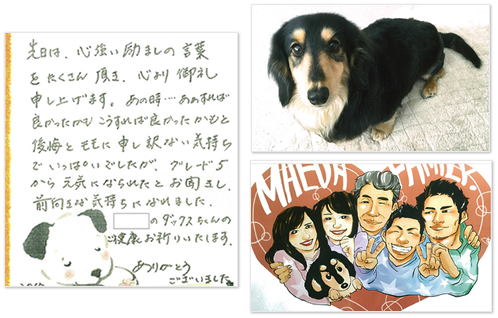 先日は、心強い励ましの言葉
をたくさん頂き、心より御礼
申し上げます。あの時…ああすれば
良かったかもこうすれば良かったかもと
後悔とともに申し訳ない気持ち
でいっぱいでしたが、グレード5
から元気になられたとお聞きし、
前向きな気持ちになれました。
のダックスちゃんの
ご健康お祈りいたします。
ありがとう
ございました
MAEDA FAMILY